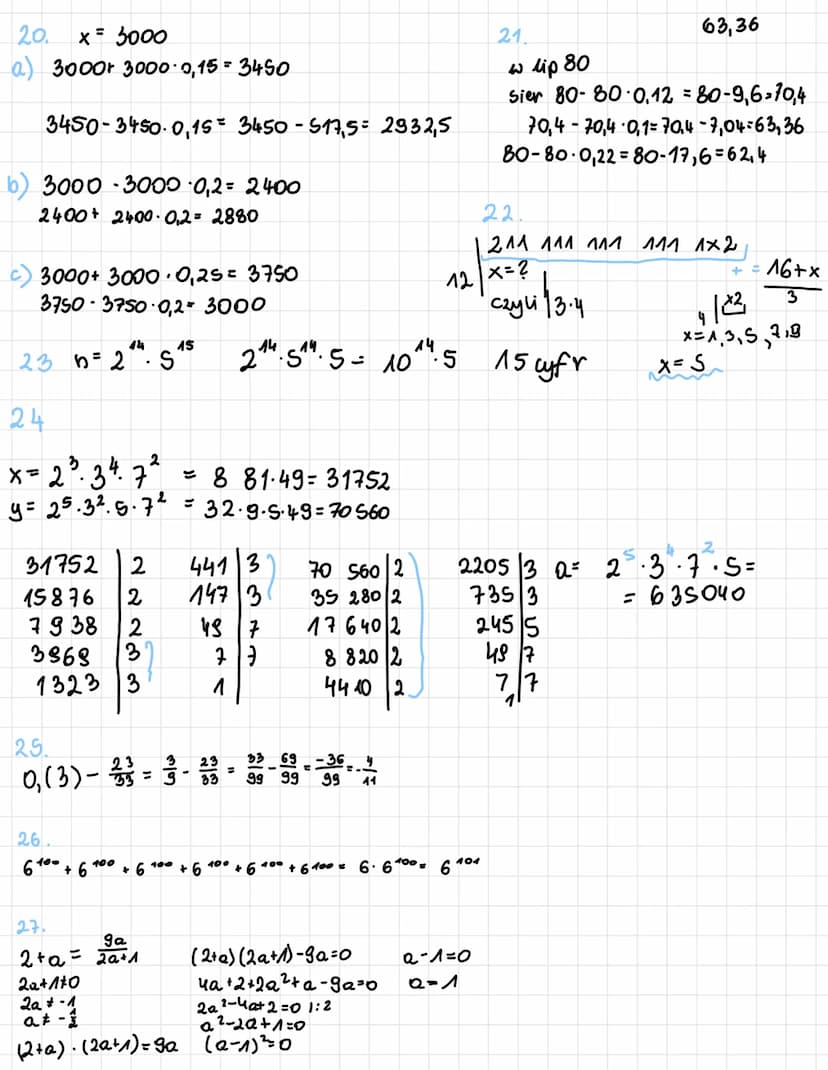 20. x = 3000
a) 3000+ 3000·0,15 = 3450
3450-3450·0,15 = 3450 - 517,5 = 2932,5
b) 3000 - 3000·0,2 = 2400
2400 + 2400·0,2 = 2880
c) 3000 + 3000·0,25 = 3750
3750 - 3750·0,2 = 3000
63,36
21.
w lip 80
sier 80 - 80·0,12 = 80-9,6=70,4
70,4 - 70,4·0,1=70,4 - 7,04=63,36
80-80·0,22=80-17,6=62,4
22.
211 111 111 111 1x2
12 | x=? + = 16+x / 3
czyli 3·4
4 | x2
x=1,3,5,7,9
x=5
23 n = 2¹⁴ · 5¹⁵ 2¹⁴·5¹⁴·5 = 10¹⁴·5 15 cyfr
24
x = 2³·3⁴·7² = 8 81·49 = 31752
y = 2⁵·3²·5·7² = 32·9·5·49=70560
31752 | 2 441 | 3 70 560 | 2 2205 | 3 a= 2⁵·3⁴·7²·5=
15876 | 2 147 | 3 35 280 | 2 735 | 3 = 635040
7938 | 2 49 | 7 17 640 | 2 245 | 5
3969 | 3 7 | 7 8 820 | 2 49 | 7
1323 | 3 1 4410 | 2 7 | 7
1
25.
0,(3) - 23/33 = 3/9 - 23/33 = 33/99 - 69/99 = -36/99 = -4/11
26.
6¹⁰⁰ + 6¹⁰⁰ + 6¹⁰⁰ + 6¹⁰⁰ + 6¹⁰⁰ + 6¹⁰⁰ = 6·6¹⁰⁰ = 6¹⁰¹
27.
2+a = 9a/2a+1
2a+1≠0
2a ≠ -1
a ≠ -1/2
(2+a)·(2a+1)=9a
(2+a)(2a+1)-9a=0
4a+2+2a²+a-9a=0
2a²-4a+2=0 |:2
a²-2a+1=0
(a-1)²=0
a-1=0
a=1